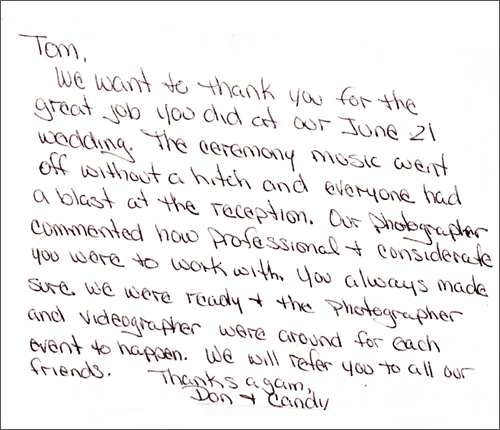 Tom,
We want to thank you for the
great job you did at our June 21
wedding. The ceremony music went
off without a hitch and everyone had
a blast at the reception. Our photographer
commented how professional + considerate
you were to work with. You always made
sure we were ready + the photographer
and videographer were around for each
event to happen. We will refer you to all our
friends. Thanks again,
Don + Candy